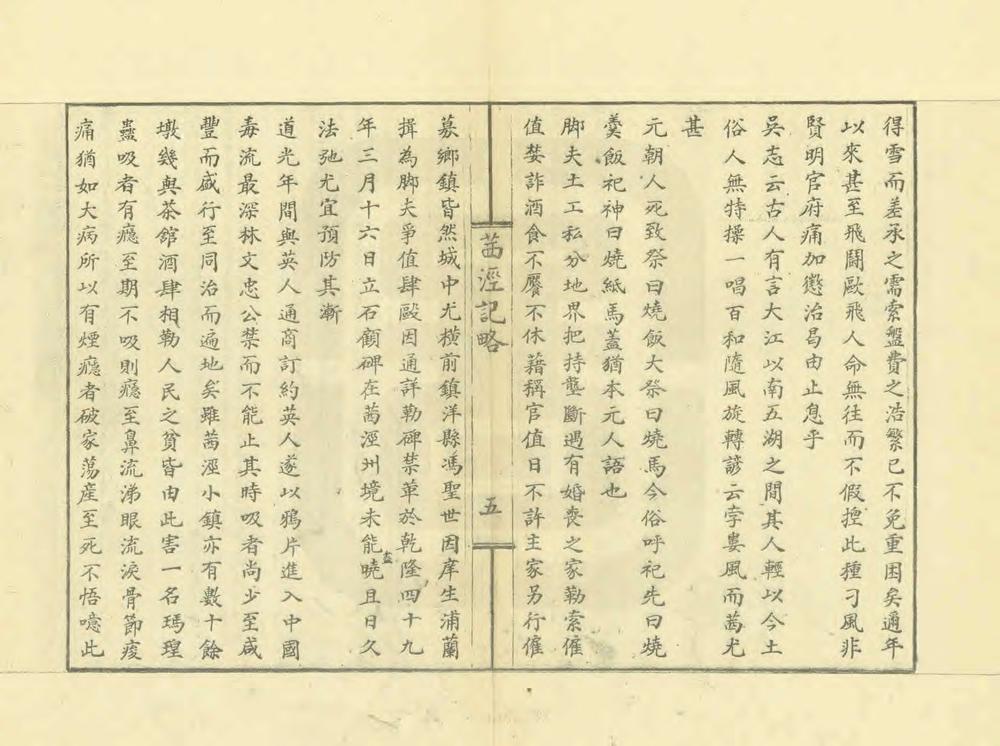 得雪而差承之需索盤費之浩繁已不免重困矣邇年
以來甚至飛鬪歐飛人命無往而不假揑此種刁風非
賢明官府痛加懲治曷由止息乎
吳志云古人有言大江以南五湖之間其人輕以今土
俗人無特操一唱百和隨風旋轉諺云孛婁風而茜尤
甚
元朝人死致祭曰燒飯大祭曰燒馬今俗呼祀先曰燒
羹飯祀神曰燒紙馬蓋猶本元人語也
脚夫土工私分地界把持壟斷遇有婚喪之家勒索僱
值婪詐酒食不饜不休藉稱官值日不許主家另行僱
茜涇記略
五
募鄉鎮皆然城中尤橫前鎮洋縣馮聖世因庠生浦蘭
揖為脚夫爭值肆毆因通詳勒碑禁革於乾隆四十九
年三月十六日立石顧碑在茜涇州境未能盡曉且日久
法弛尤宜預防其漸
道光年間與英人通商訂約英人遂以鴉片進入中國
毒流最深林文忠公禁而不能止其時吸者尚少至咸
豐而盛行至同治而遍地矣雖茜涇小鎮亦有數十餘
墩幾與茶館酒肆相勒人民之貧皆由此害一名瑪瑆
蠱吸者有癮至期不吸則癮至鼻流涕眼流淚骨節痠
痛猶如大病所以有煙癮者破家蕩產至死不悟噫此